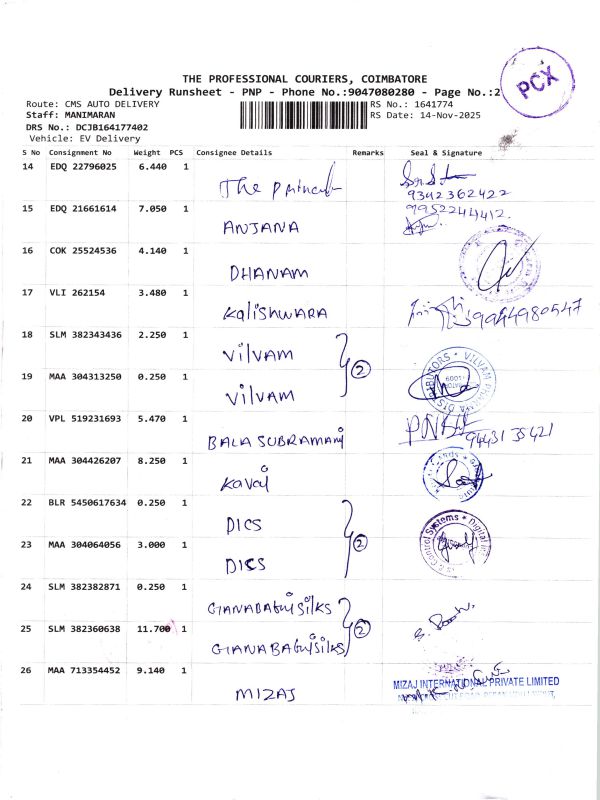 THE PROFESSIONAL COURIERS, COIMBATORE
Delivery Runsheet - PNP - Phone No.:9047080280 - Page No.:2
PCX
Route: CMS AUTO DELIVERY
RS No.: 1641774
Staff: MANIMARAN
RS Date: 14-Nov-2025
DRS No.: DCJB164177402
Vehicle: EV Delivery
S No Consignment No Weight PCS Consignee Details Remarks Seal & Signature
14 EDQ 22796025 6.440 1 The
9342362422
15 EDQ 21661614 7.050 1 ANJANA
9952244412.
16 COK 25524536 4.140 1 DHANAM
17 VLI 262154 3.480 1 Kalishwara
9944980547
18 SLM 382343436 2.250 1 Vilvam
2
19 MAA 304313250 0.250 1 Vilvam
VILVAM PHARMA DISTRIBUTORS
20 VPL 519231693 5.470 1 BALA SUBRAMANI
94431 35421
21 MAA 304426207 8.250 1 Kavaj
22 BLR 5450617634 0.250 1 DICS
2
23 MAA 304064056 3.000 1 DICS
Control Systems * Digital
24 SLM 382382871 0.250 1 GIANABAGUISILKS
2
25 SLM 382360638 11.700 1 GIANABAGUISILKS
26 MAA 713354452 9.140 1 MIZAJ
MIZAJ INTERNATIONAL PRIVATE LIMITED